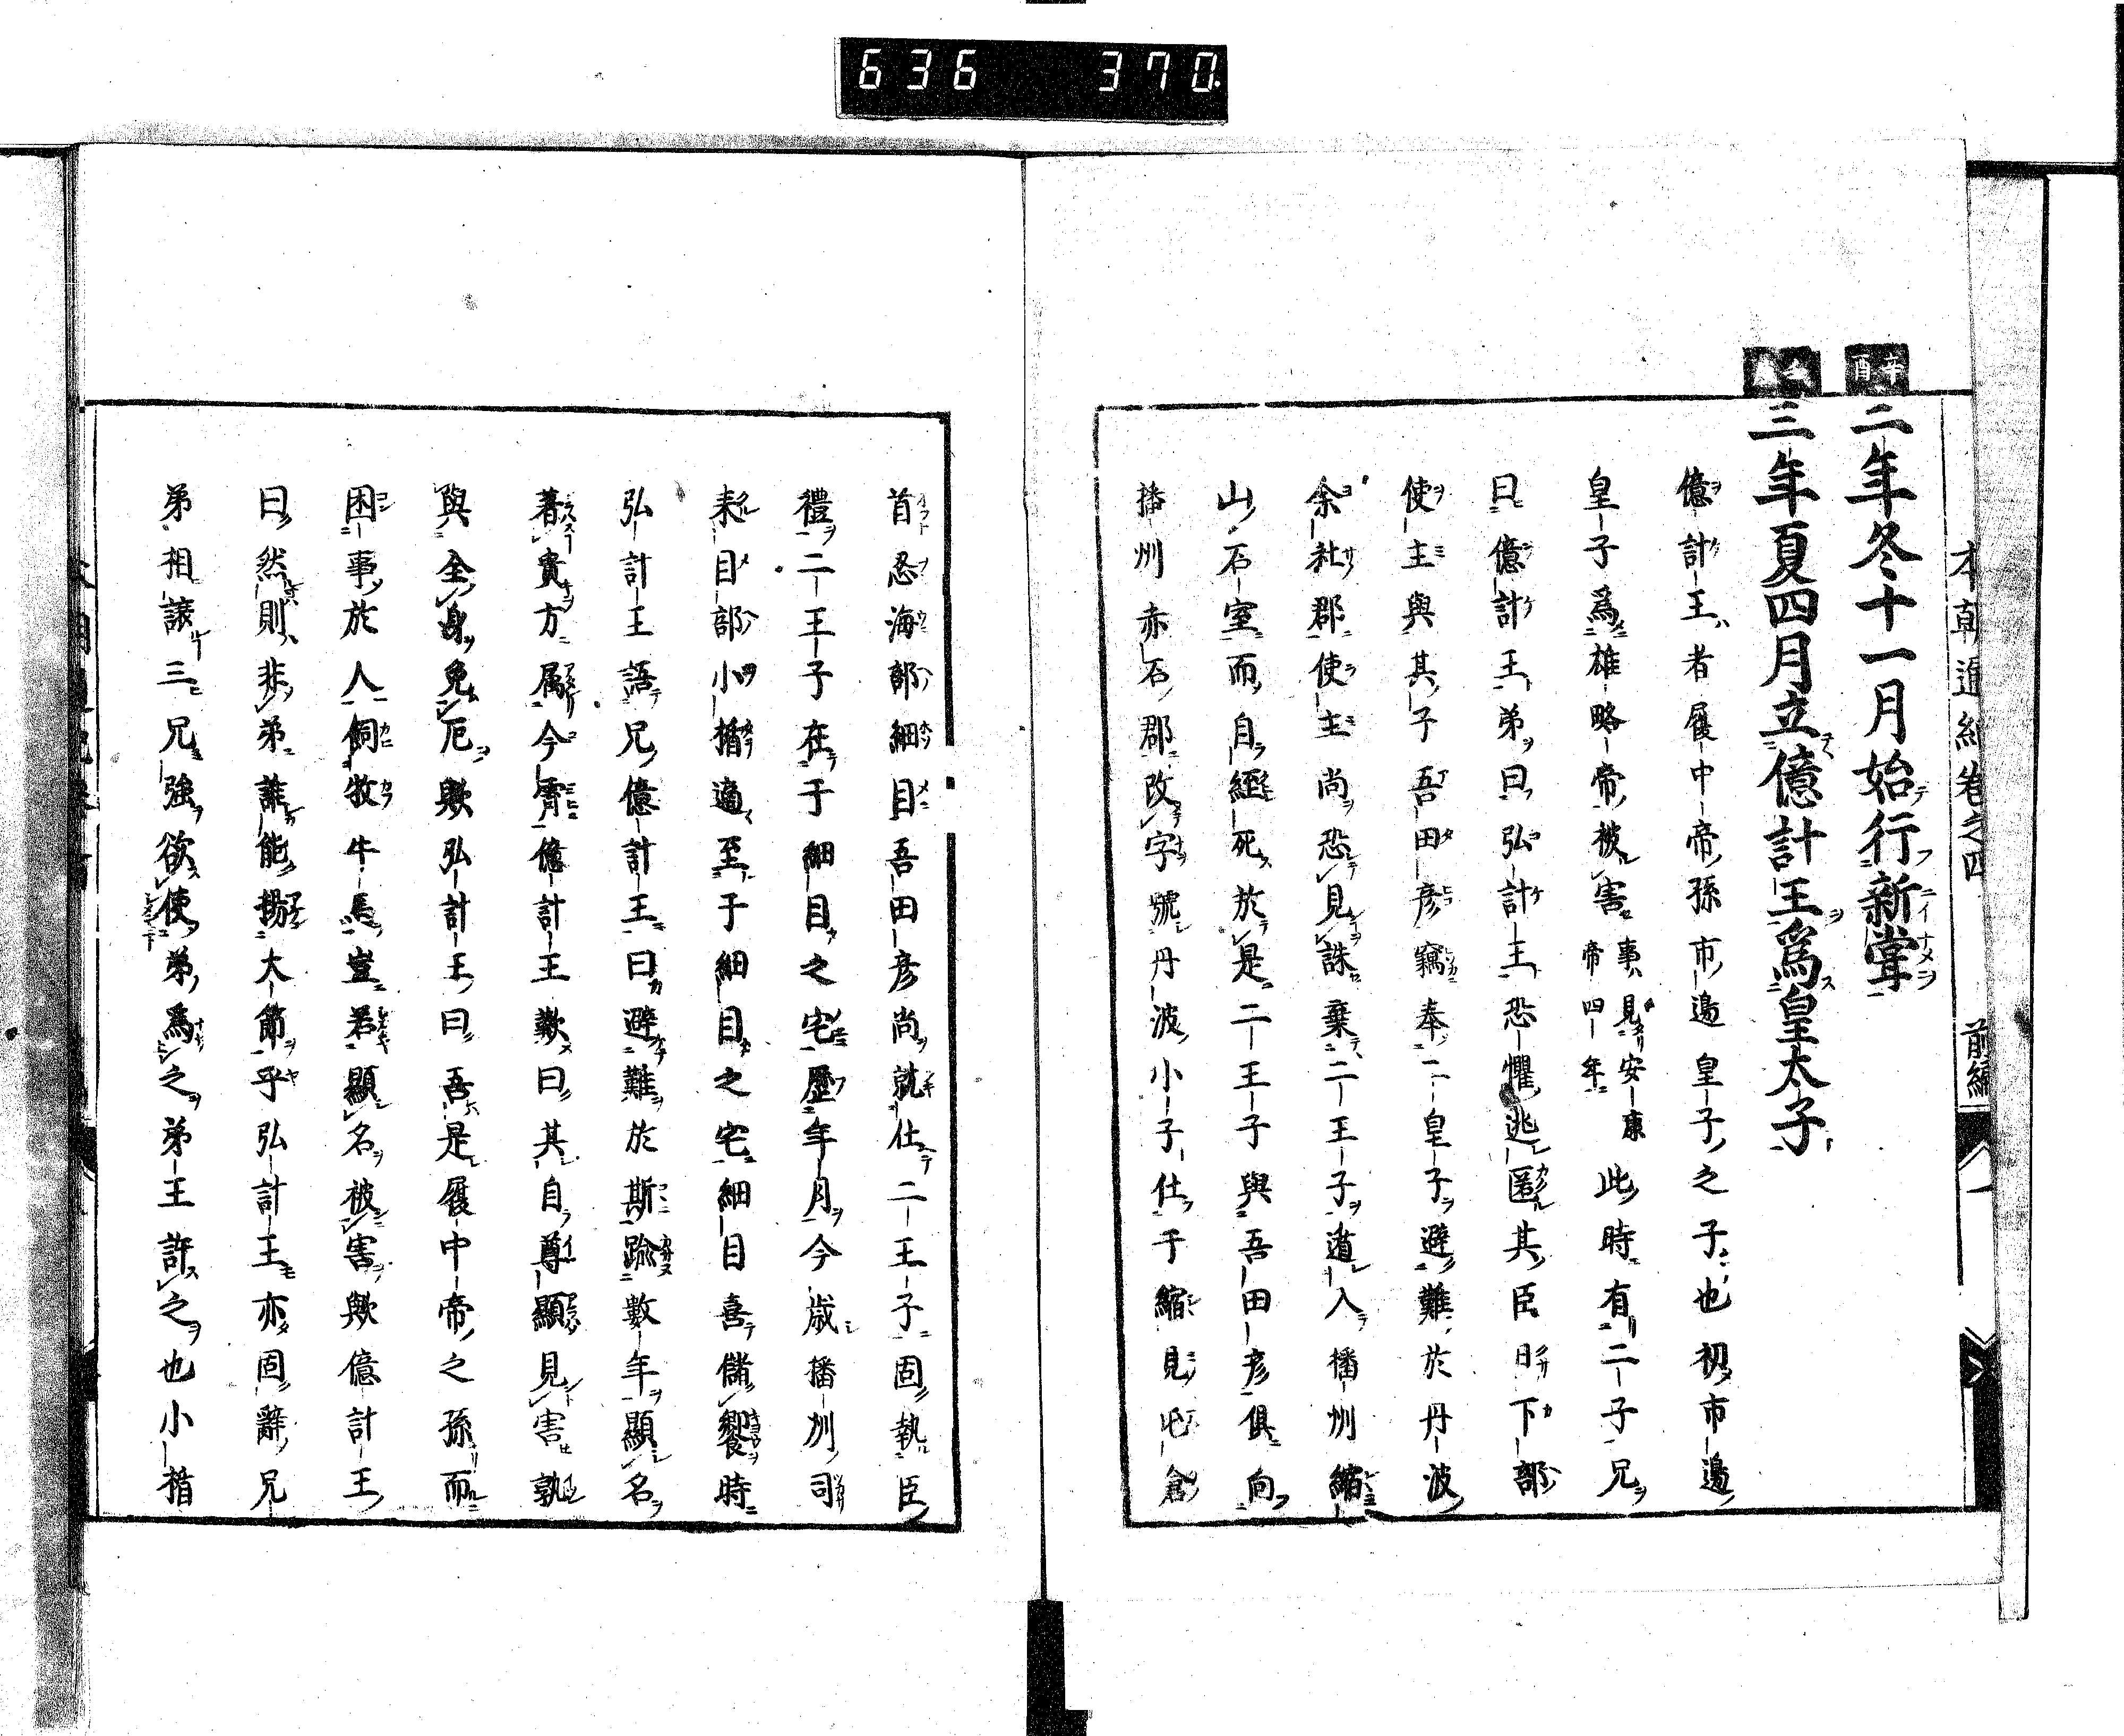 636 370
本朝通紀卷之四 前編
辛酉
二年冬十一月始行新嘗
三年夏四月立億計王爲皇太子
億計王者履中帝孫市邊皇子之子也初市邊
皇子爲雄略帝被害事見安康帝四年此時有二子兄
曰億計王弟曰弘計王恐懼逃匿其臣日下部
使主與其子吾田彦竊奉二皇子避難於丹波
余社郡使主尚恐見誅棄二王子遁入播州縮
山石室而自經死於是二王子與吾田彦俱向
播州赤石郡改字號丹波小子仕于縮見屯倉
首忍海部細目吾田彦尚就仕二王子固執臣
禮二王子在于細目之宅歷年月今歳播州司
來目部小楯適至于細目之宅細目喜備饗時
弘計王語兄億計王曰避難於斯踰數年顯名
著貴方属今宵億計王歎曰其自尊顯見害孰
與全身免厄歟弘計王曰吾是履中帝之孫而
困事於人飼牧牛馬豈若顯名被害歟億計王
曰然則非弟誰能揚大節乎弘計王亦固辭兄
弟相讓三兄強欲使弟爲之弟王許之也小楯